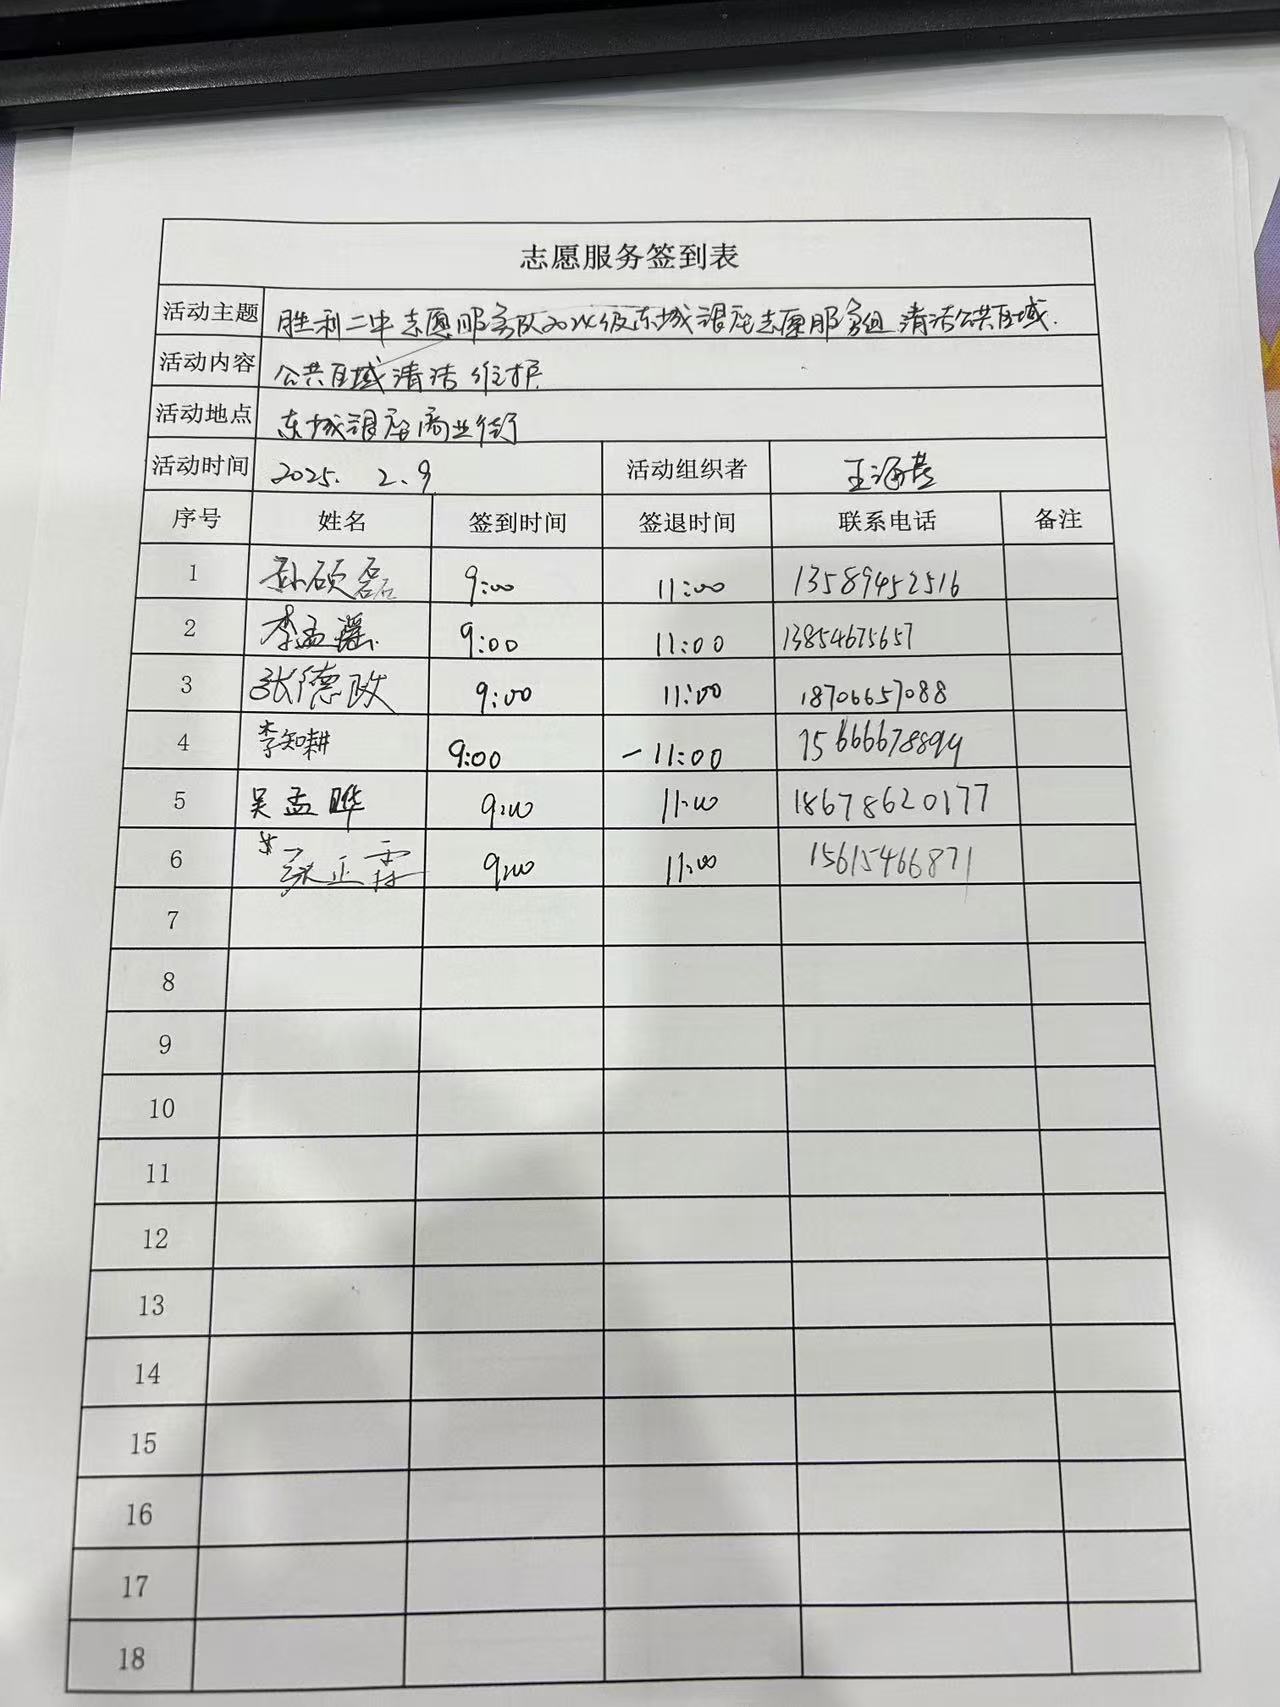 志愿服务签到表
活动主题 胜利二中志愿服务队2024级东城银座志愿服务组 清洁公共区域.
活动内容 公共区域清洁 维护
活动地点 东城银座商业街
活动时间 2025. 2.9 活动组织者 王海
序号 姓名 签到时间 签退时间 联系电话 备注
1 孙硕磊 9:00 11:00 13589452516
2 李孟瑶 9:00 11:00 13854675657
3 张德政 9:00 11:00 18706657088
4 李知耕 9:00 -11:00 15666678894
5 吴孟晔 9:00 11:00 18678620177
6 张正霖 9:00 11:00 15615466871
7
8
9
10
11
12
13
14
15
16
17
18